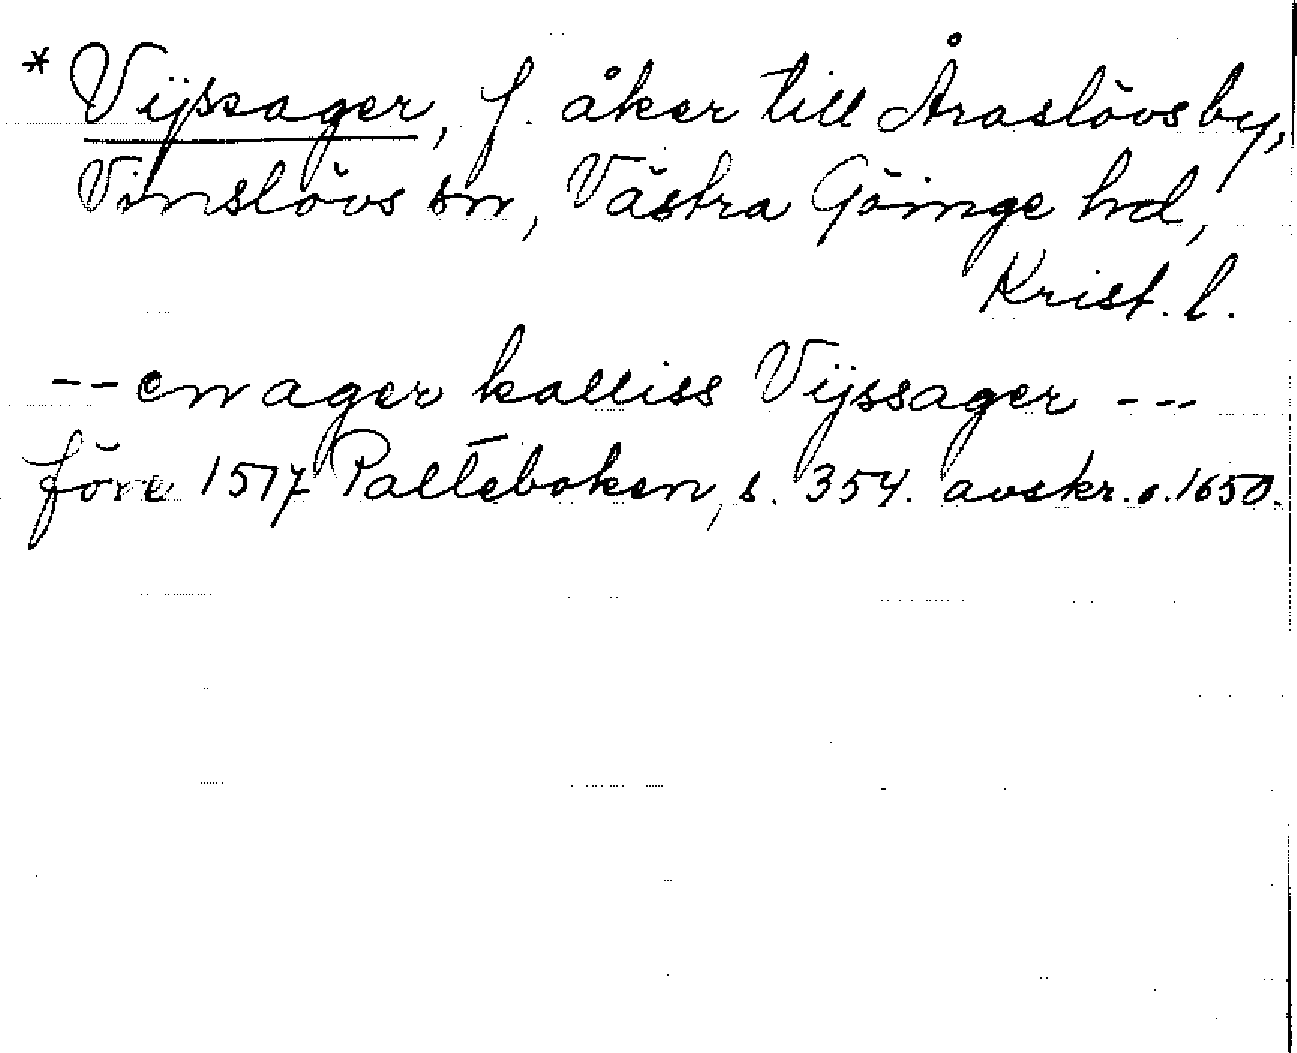 * Vijssager, f. åker till Åraslövs by,
Vinslövs sn, Västra Göinge hd,
Krist. l.
-- en ager kalliss Vijssager ---
före 1517 Palteboken, s. 354. avskr. o. 1650.